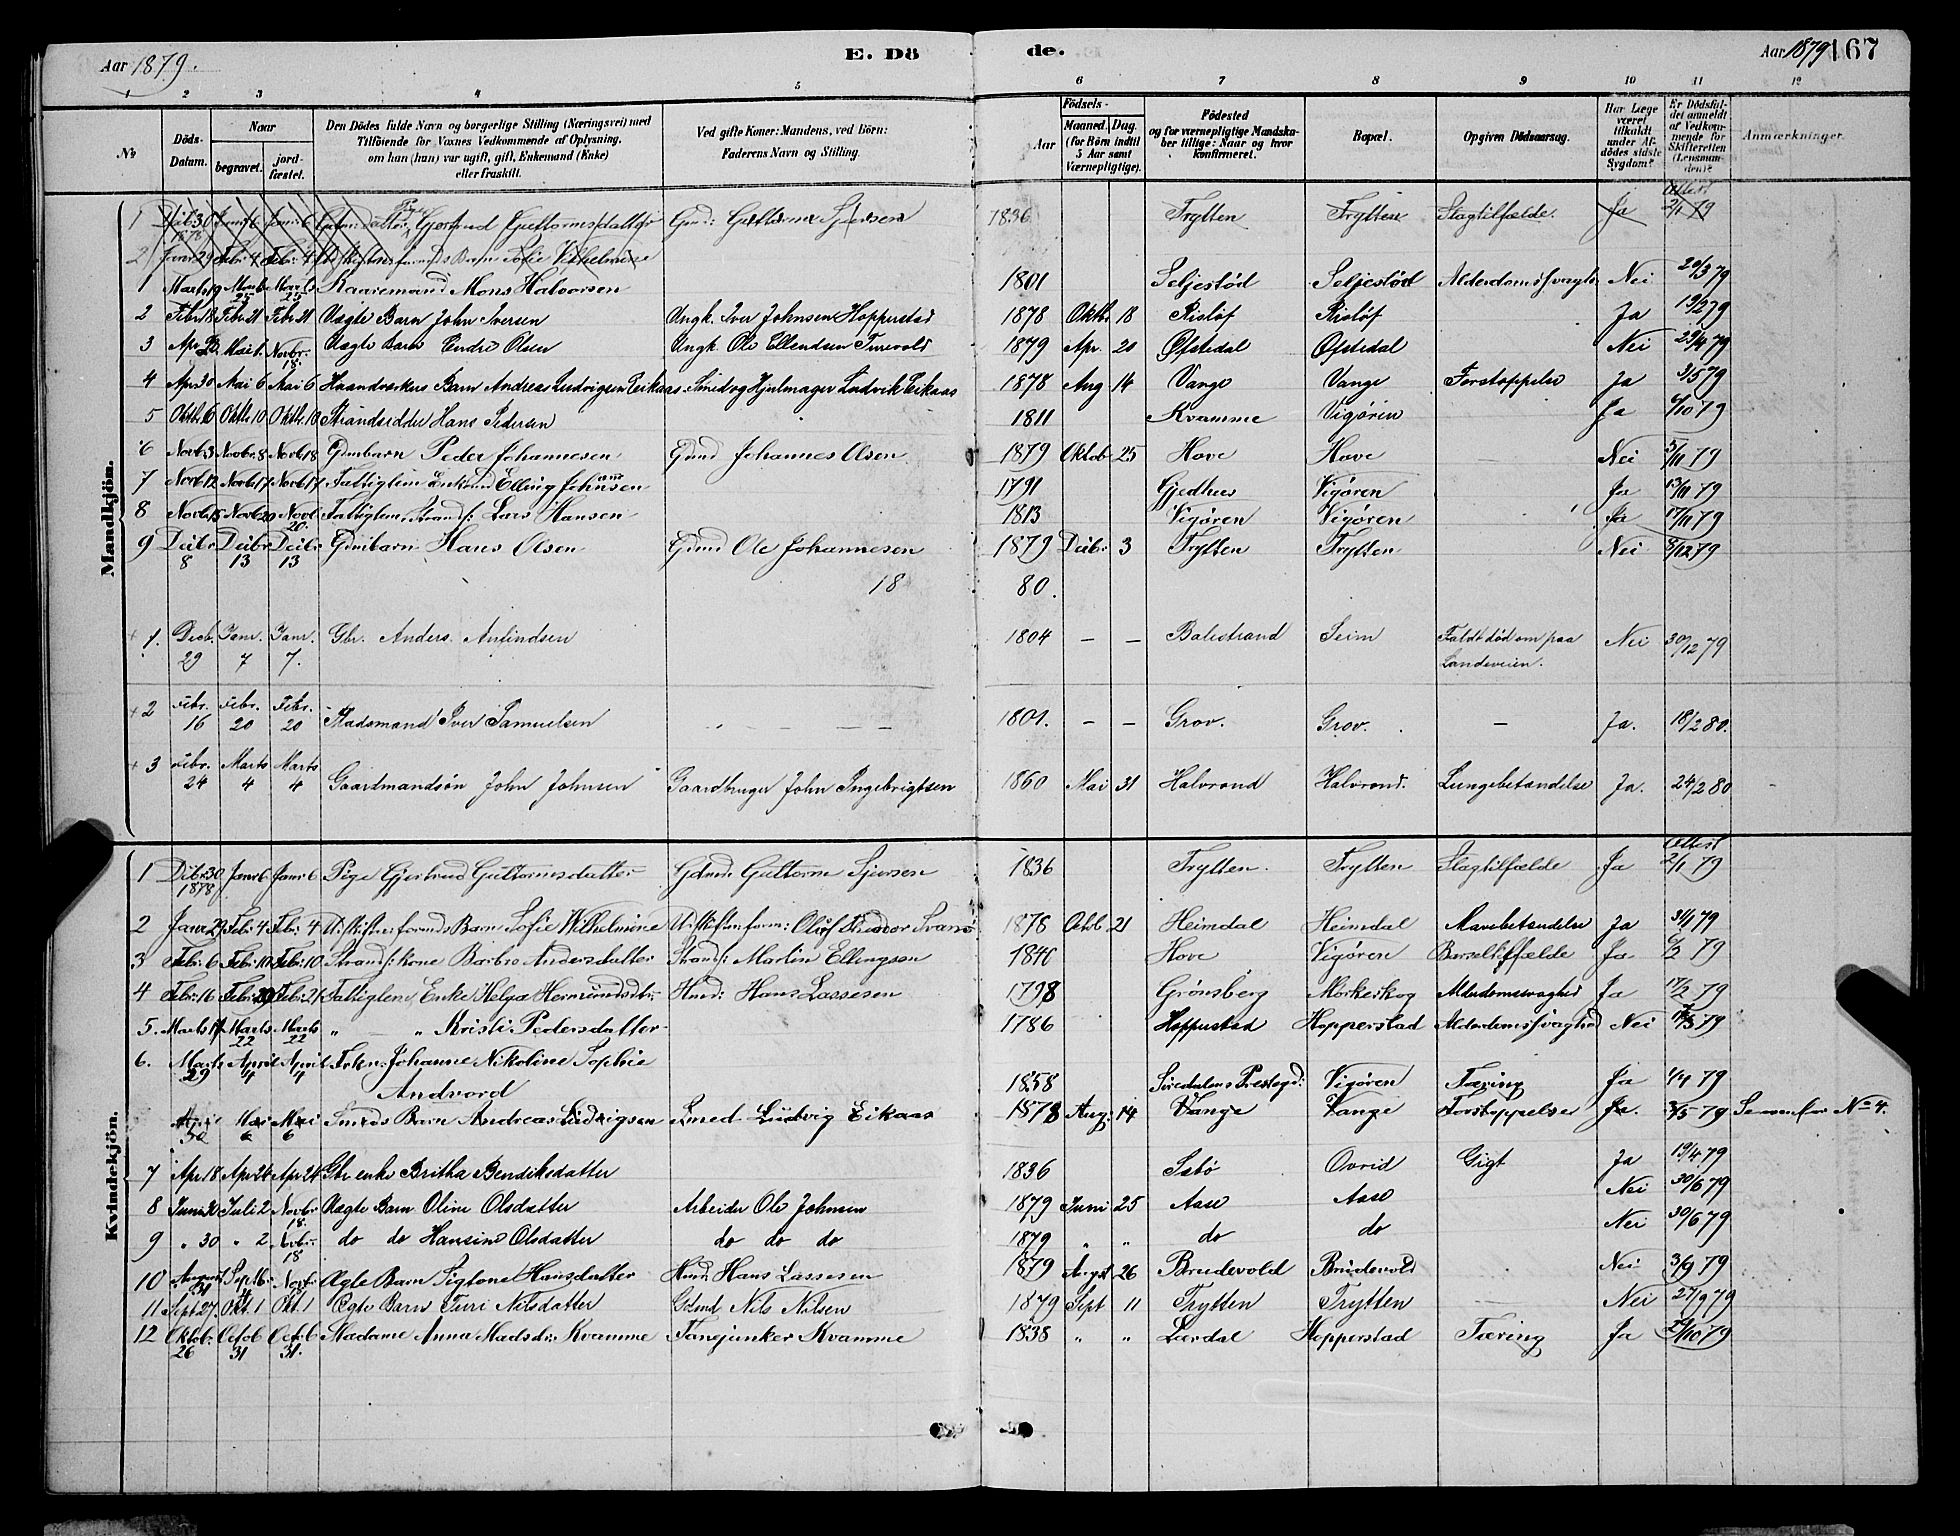 Aar 1879. E. Dö de. Aar 1879 167
1 2 3 4 5 6 7 8 9 10 11 12
No Döds-Datum. Naar begravet. jordfæstet. Den Dödes fulde Navn og borgerlige Stilling (Næringsvei) med Tilföiende for Voxnes Vedkommende af Oplysning, om han (hun) var ugift, gift, Enkemand (Enke) eller fraskilt. Ved gifte Koner: Mandens, ved Börn: Faderens Navn og Stilling. Aar Födsels- Maaned. Dag. (for Börn indtil 5 Aar samt Værnepligtige). Födested og for værnepligtige Mandskaber tillige: Naar og hvor konfirmeret. Bopæl. Opgiven Dödsaarsag. Har Læge været tilkaldt under Afdödes sidste Sygdom? Er Dödsfaldet anmeldt af Vedkommende for Skifteretten (Lensmanden)? Anmærkninger.
Mandkjön.
1 Decbr 30 1878 Janr 6 Janr 6 Pige Gjertrud Guttormsdatter Gmd: Guttorm Sjursen 1836 Trytten Trytten Slagtilfælde. Ja Attest 2/1 79
2 Janr 29 Febr 4 Febr 4 Barn Sofie Vilhelmine
1 Marts 19 Marts 25 Marts 25 Kaaremand Mons Halvorsen 1801 Seljestød Seljestød Alderdomssvaghd Nei 20/3 79
2 Febr 18 Febr 21 Febr 21 Uægte Barn John Iversen Ungk. Iver Johnsen Hopperstad 1878 Oktbr 18 Risløf Risløf Ja 19/2 79
3 Apr Mai 1. Novbr. 18. Uægte Barn Endre Olsen Ungk. Ole Ellendsen Turvold 1879 Apr. 20 Ofstedal Ofstedal Nei 29/4 79
4 Apr 30 Mai 6 Mai 6 Haandværkers Barn Andreas Ludvigsen Eikaas Smed og Hjulmager Ludvik Eikaas 1878 Aug 14 Vange Vange Forstoppelse Ja 3/5 79
5 Oktbr 6 Oktbr. 10 Oktbr. 10 Strandsidder Hans Pedersen 1811 Kvamme Vigøren Ja 6/10 79
6 Novb 3 Novbr 8 Novb 18 Gdmbarn Peder Johannesen Gdmd Johannes Olsen 1879 Oktob 25 Hove Hove — Nei 5/11 79
7 Novb 12 Novb 17 Novb 17 Fattiglem Enkemd Elling Johansen 1791 Gjedhus Vigøren Ja 13/11 79
8 Novb 15 Novb 20 Novb 20. Fattiglem, Strands: Lars Hansen 1813 Vigøren Vigøren Ja 17/11 79
9 Decbr 8 Decbr 13 Decbr 13 Gdmbarn Hans Olsen Gdmd Ole Johannesen 1879 Decbr 3 Trytten Trytten Nei 8/12 79
18 80.
+ 1. Decb. 29 Janr. 7 Janr. 7. Gbr. Anders Anfindsen 1804 — — Balestrand Seim Faldt død om paa Landeveien. Nei 30/12 79
+ 2 Febr. 16 Febr. 20 Febr. 20 Stadsmand Iver Samuelsen 1801. — — Grov. Grov. — Ja. 18/2 80.
+ 3 Febr. 24 Marts 4 Marts 4 Gaardmandsøn John Johnsen Gaardbruger John Ingebrigtsen 1860 Mai 31 Halvrond Halvrond. Lungebetændelse Ja. 24/2 80
Kvindekjön.
1 Decbr 30 1878 Janr 6 Janr 6 Pige Gjertrud Guttormsdatter Gdmd: Guttorm Sjursen 1836 Trytten. Trytten Slagtilfælde Ja Attest 2/1 79
2 Janr 29 Febr. 4 Febr. 4 Barn Sofie Wilhelmine Oluf 1878 Octb. 21 Heimdal Heimdal Mavebetændelse Ja 31/1 79
3 Febr. 6 Febr. 10 Febr. 10 Strands: kone Barbro Andersdatter Strands: Martin Ellingsen 1840 Hove Vigøren Barseltilfælde Ja 6/2 79
4 Febr. 16 Febr. Febr. 21 Fattiglem Enke Helga Hermundsdtr. Hmd: Hans Lassesen 1798 Grønsberg Morkeskog Alderdomssvaghed Ja 17/2 79
5. Marts 17 Marts 22 Marts 22 " — " Kristi Pedersdatter 1786 Hopperstad Hopperstad Alderdomssvaghed Nei 18/3 79
6. Marts 29 April 4 April 4 Frkn. Johanne Nikoline Sophie
Andvord 1858 Siredalens Prestegd: Vigøren Tæring Ja 1/4 79
Apr 30 Mai 6 Mai 6 Smeds Barn Andreas Ludvigsen Smed Ludvig Eikaas 1878 Aug: 14 Vange Vange Forstoppelse Ja. 3/5 79 No 4.
7 Apr 18 Apr 24 Apr 24 Gbr enke Britha Bendiksdatter 1836 Sæbø Ovrid Gigt Ja 19/4 79
8 Juni 30 Juli 2 Novbr 18. Uægte Barn Oline Olsdatter Arbeider Ole Johnsen 1879 Juni 25 Aase Aase Nei 30/6 79
9 " 30 " 2 Novbr. 18 do do Hansine Olsdatter do do do 1879 " " do do Nei 30/6 79
10 August 31 Septb. Novbr. Ægte Barn Sigtone Hansdatter Hmd. Hans Lassesen 1879 Augst 26 Brudevold Brudevold Nei 3/9 79
11 Sept 27. Okt. 1 Okt. 1 Ægte Barn Turi Nilsdatter Gdmd Nils Nilsen 1879 Sept 11 Trytten Trytten — Nei 27/9 79
12 Oktob. 26 Octob 31 Octob 31. Madame Anna Madsdr. Kvamme Fanejunker Kvamme 1838 " " Lærdal Hopperstad Tæring Ja 27/10 79